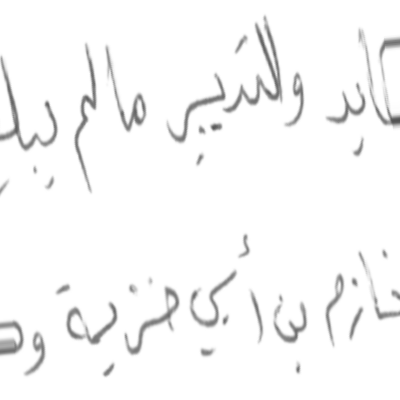 والتدبير ما لم يبلـ
خازم بن أبي خزيمة و